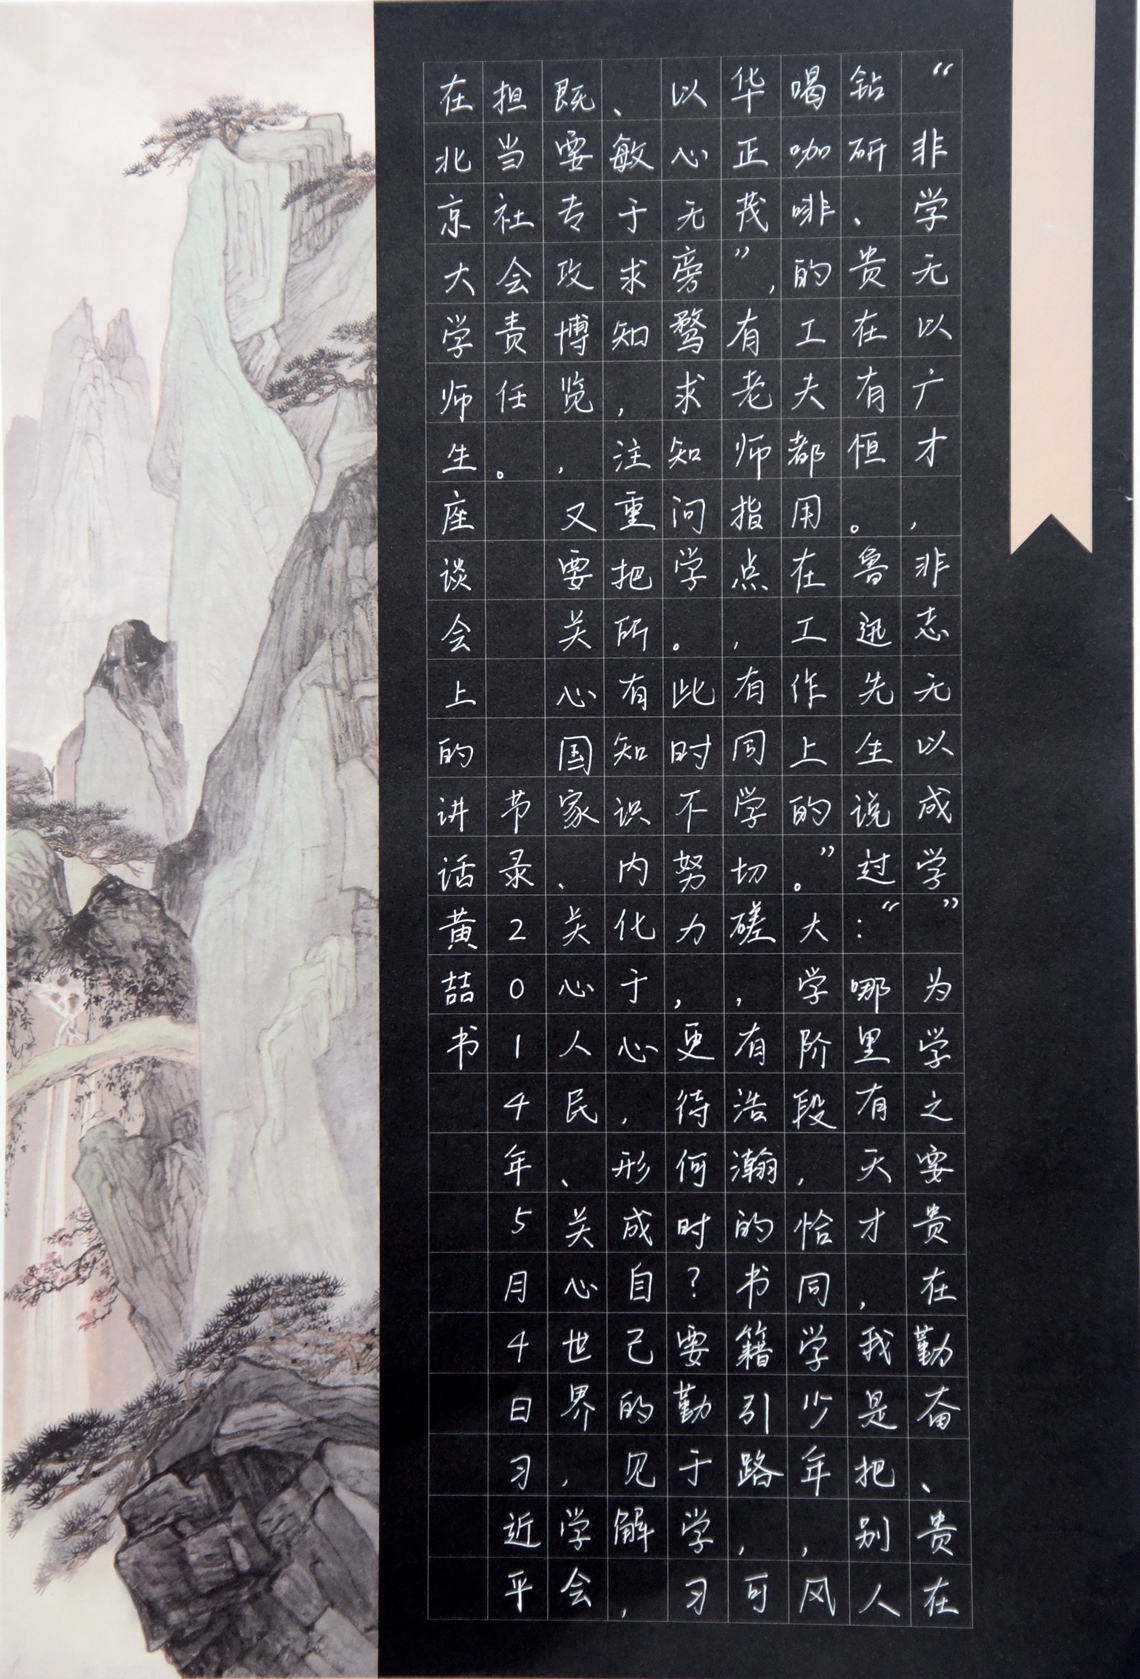 “非学无以广才，非志无以成学”为学之要贵在勤奋、贵在
钻研、贵在有恒。鲁迅先生说过：“哪里有天才，我是把别人
喝咖啡的工夫都用在工作上的。”大学阶段，恰同学少年，风
华正茂”，有老师指点，有同学切磋，有浩瀚的书籍引路，可
以心无旁骛求知问学。此时不努力，更待何时？要勤于学习
、敏于求知，注重把所有知识内化于心，形成自己的见解，
既要专攻博览，又要关心国家、关心人民、关心世界，学会
担当社会责任。节录2014年5月4日习近平
在北京大学师生座谈会上的讲话黄喆书